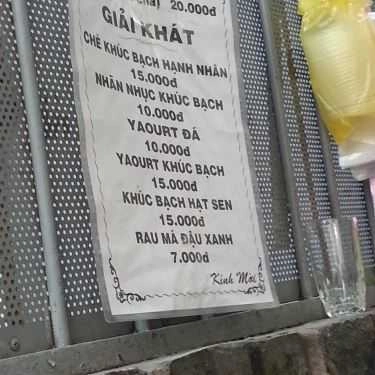 20.000đ
GIẢI KHÁT
CHÈ KHÚC BẠCH HẠNH NHÂN
15.000đ
NHÃN NHỤC KHÚC BẠCH
10.000đ
YAOURT ĐÁ
10.000đ
YAOURT KHÚC BẠCH
15.000đ
KHÚC BẠCH HẠT SEN
15.000đ
RAU MÁ ĐẬU XANH
7.000đ
Kính Mời